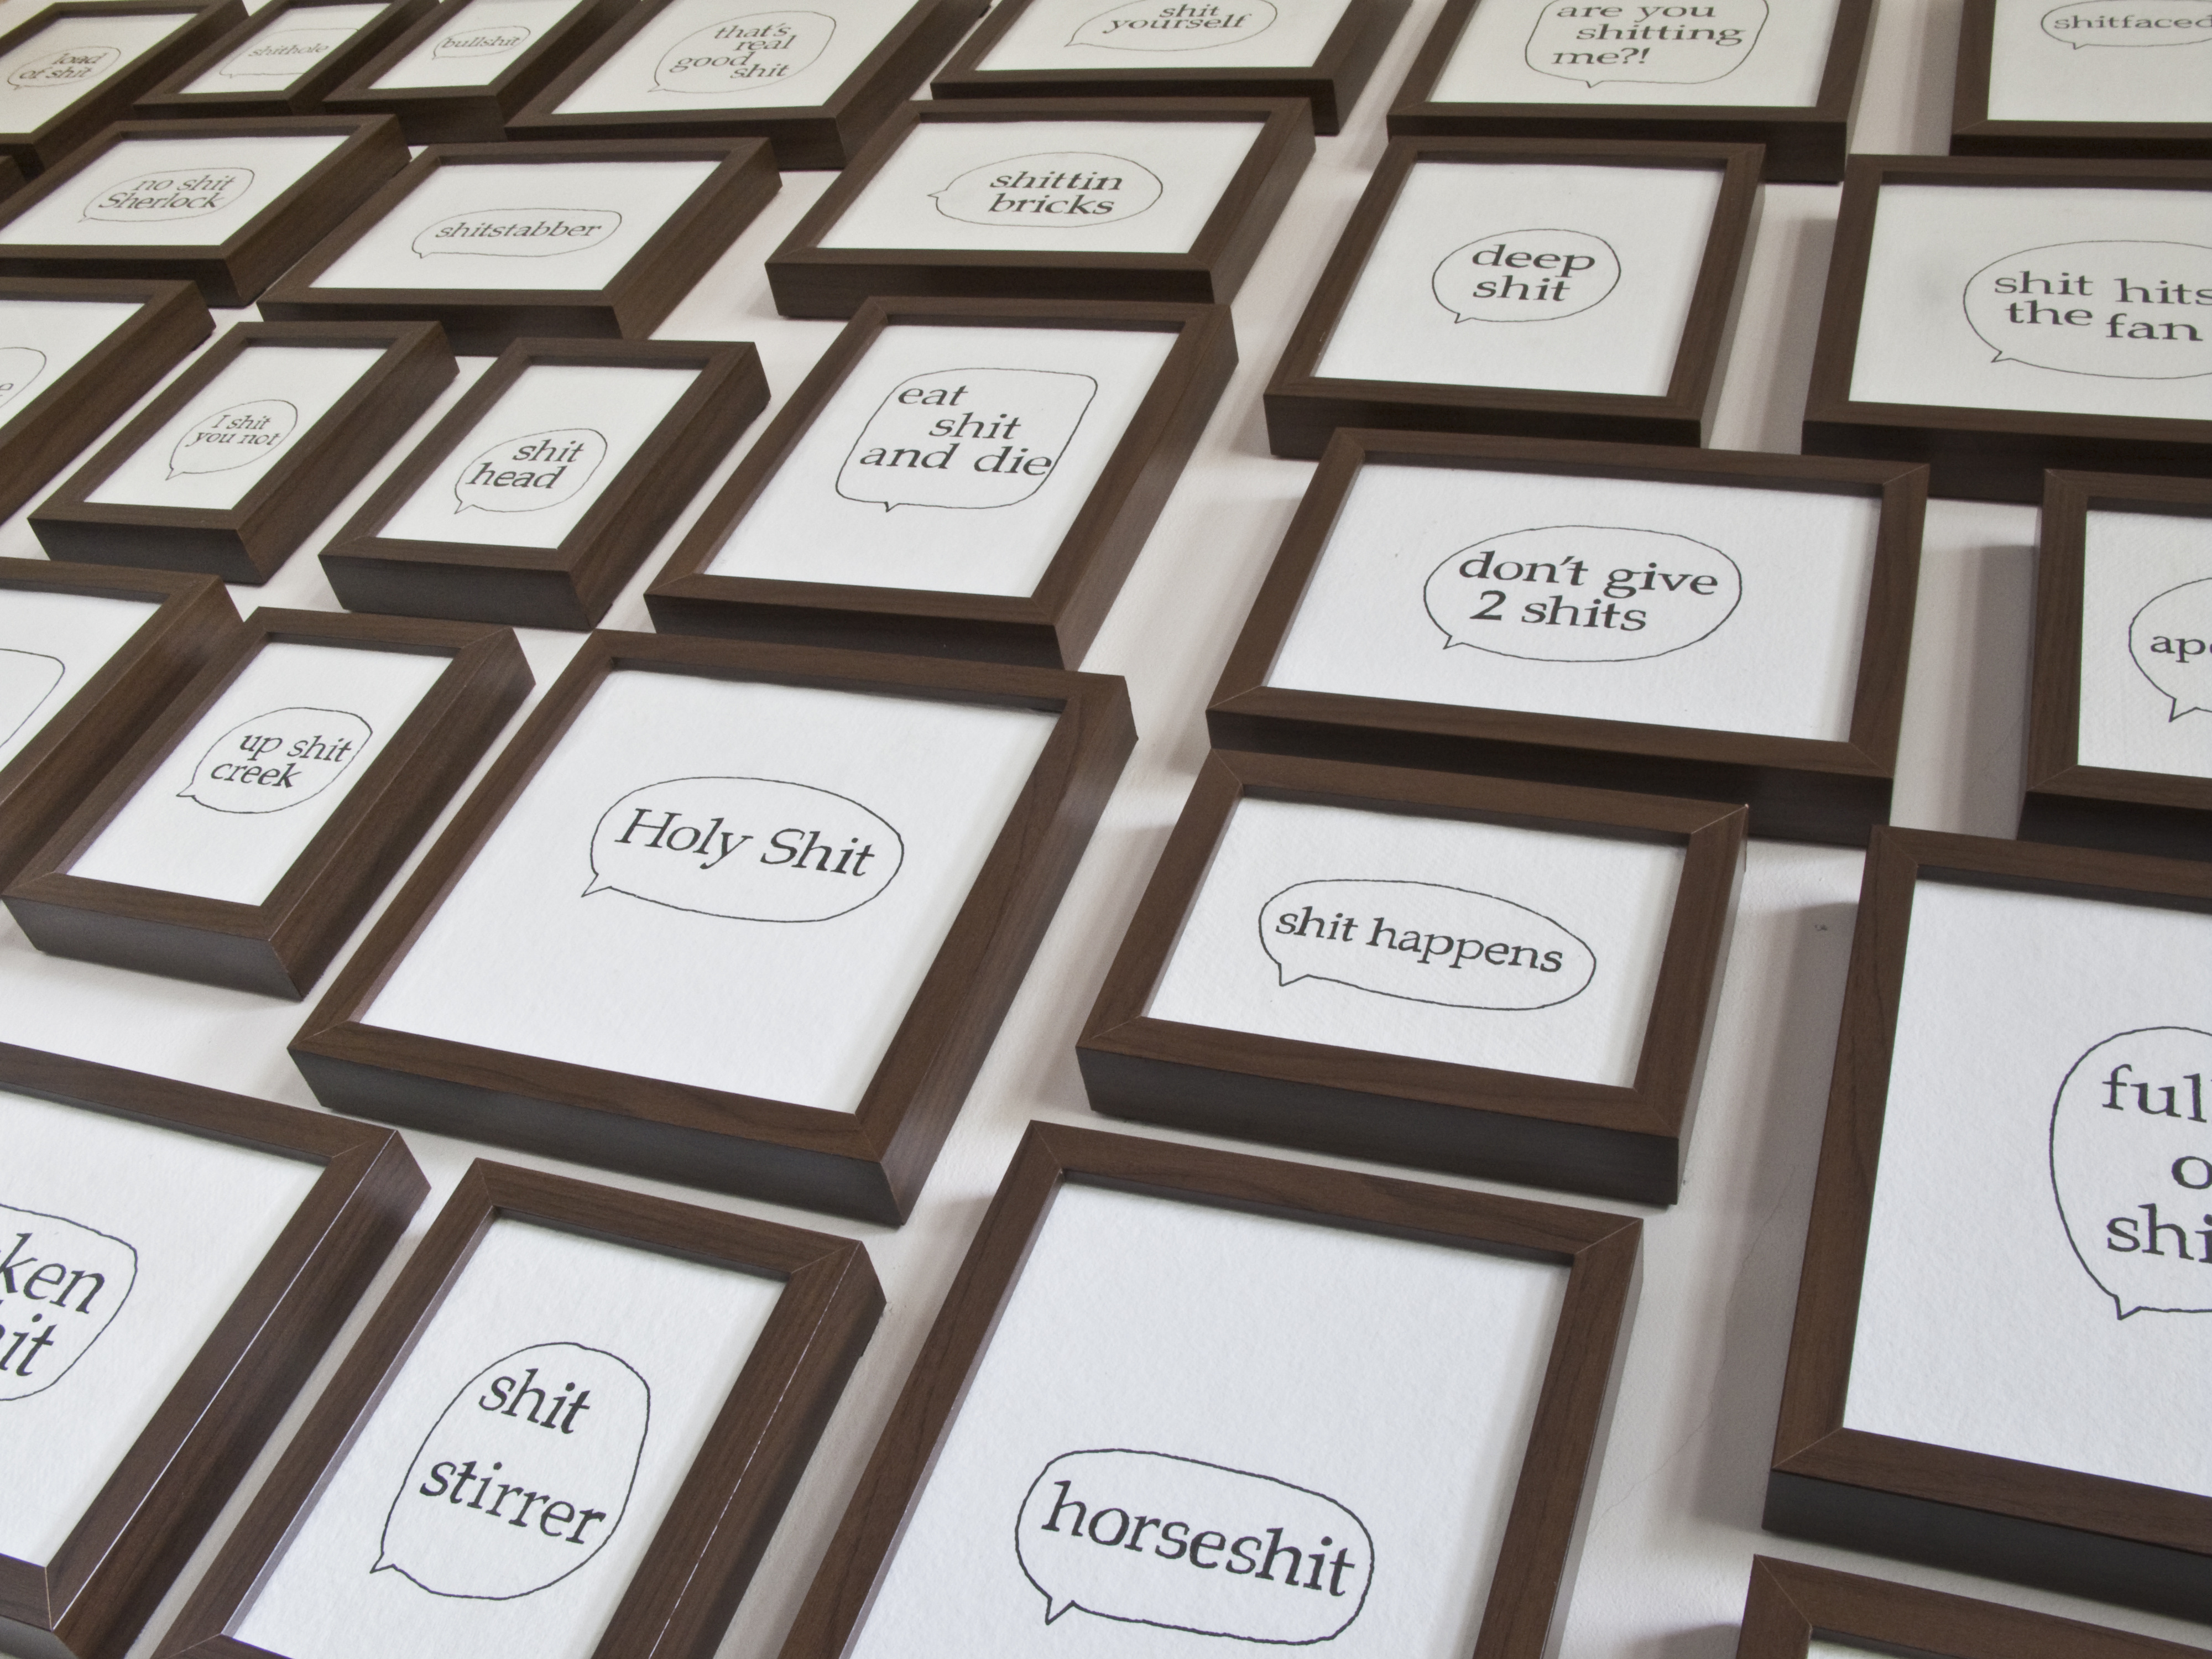 load
of shit
shithole
bullshit
that's
real
good
shit
shit
yourself
are you
shitting
me?!
shitfaced
no shit
Sherlock
shitstabber
shittin
bricks
deep
shit
shit hits
the fan
I shit
you not
shit
head
eat
shit
and die
don't give
2 shits
up shit
creek
Holy Shit
shit happens
shit
stirrer
horseshit